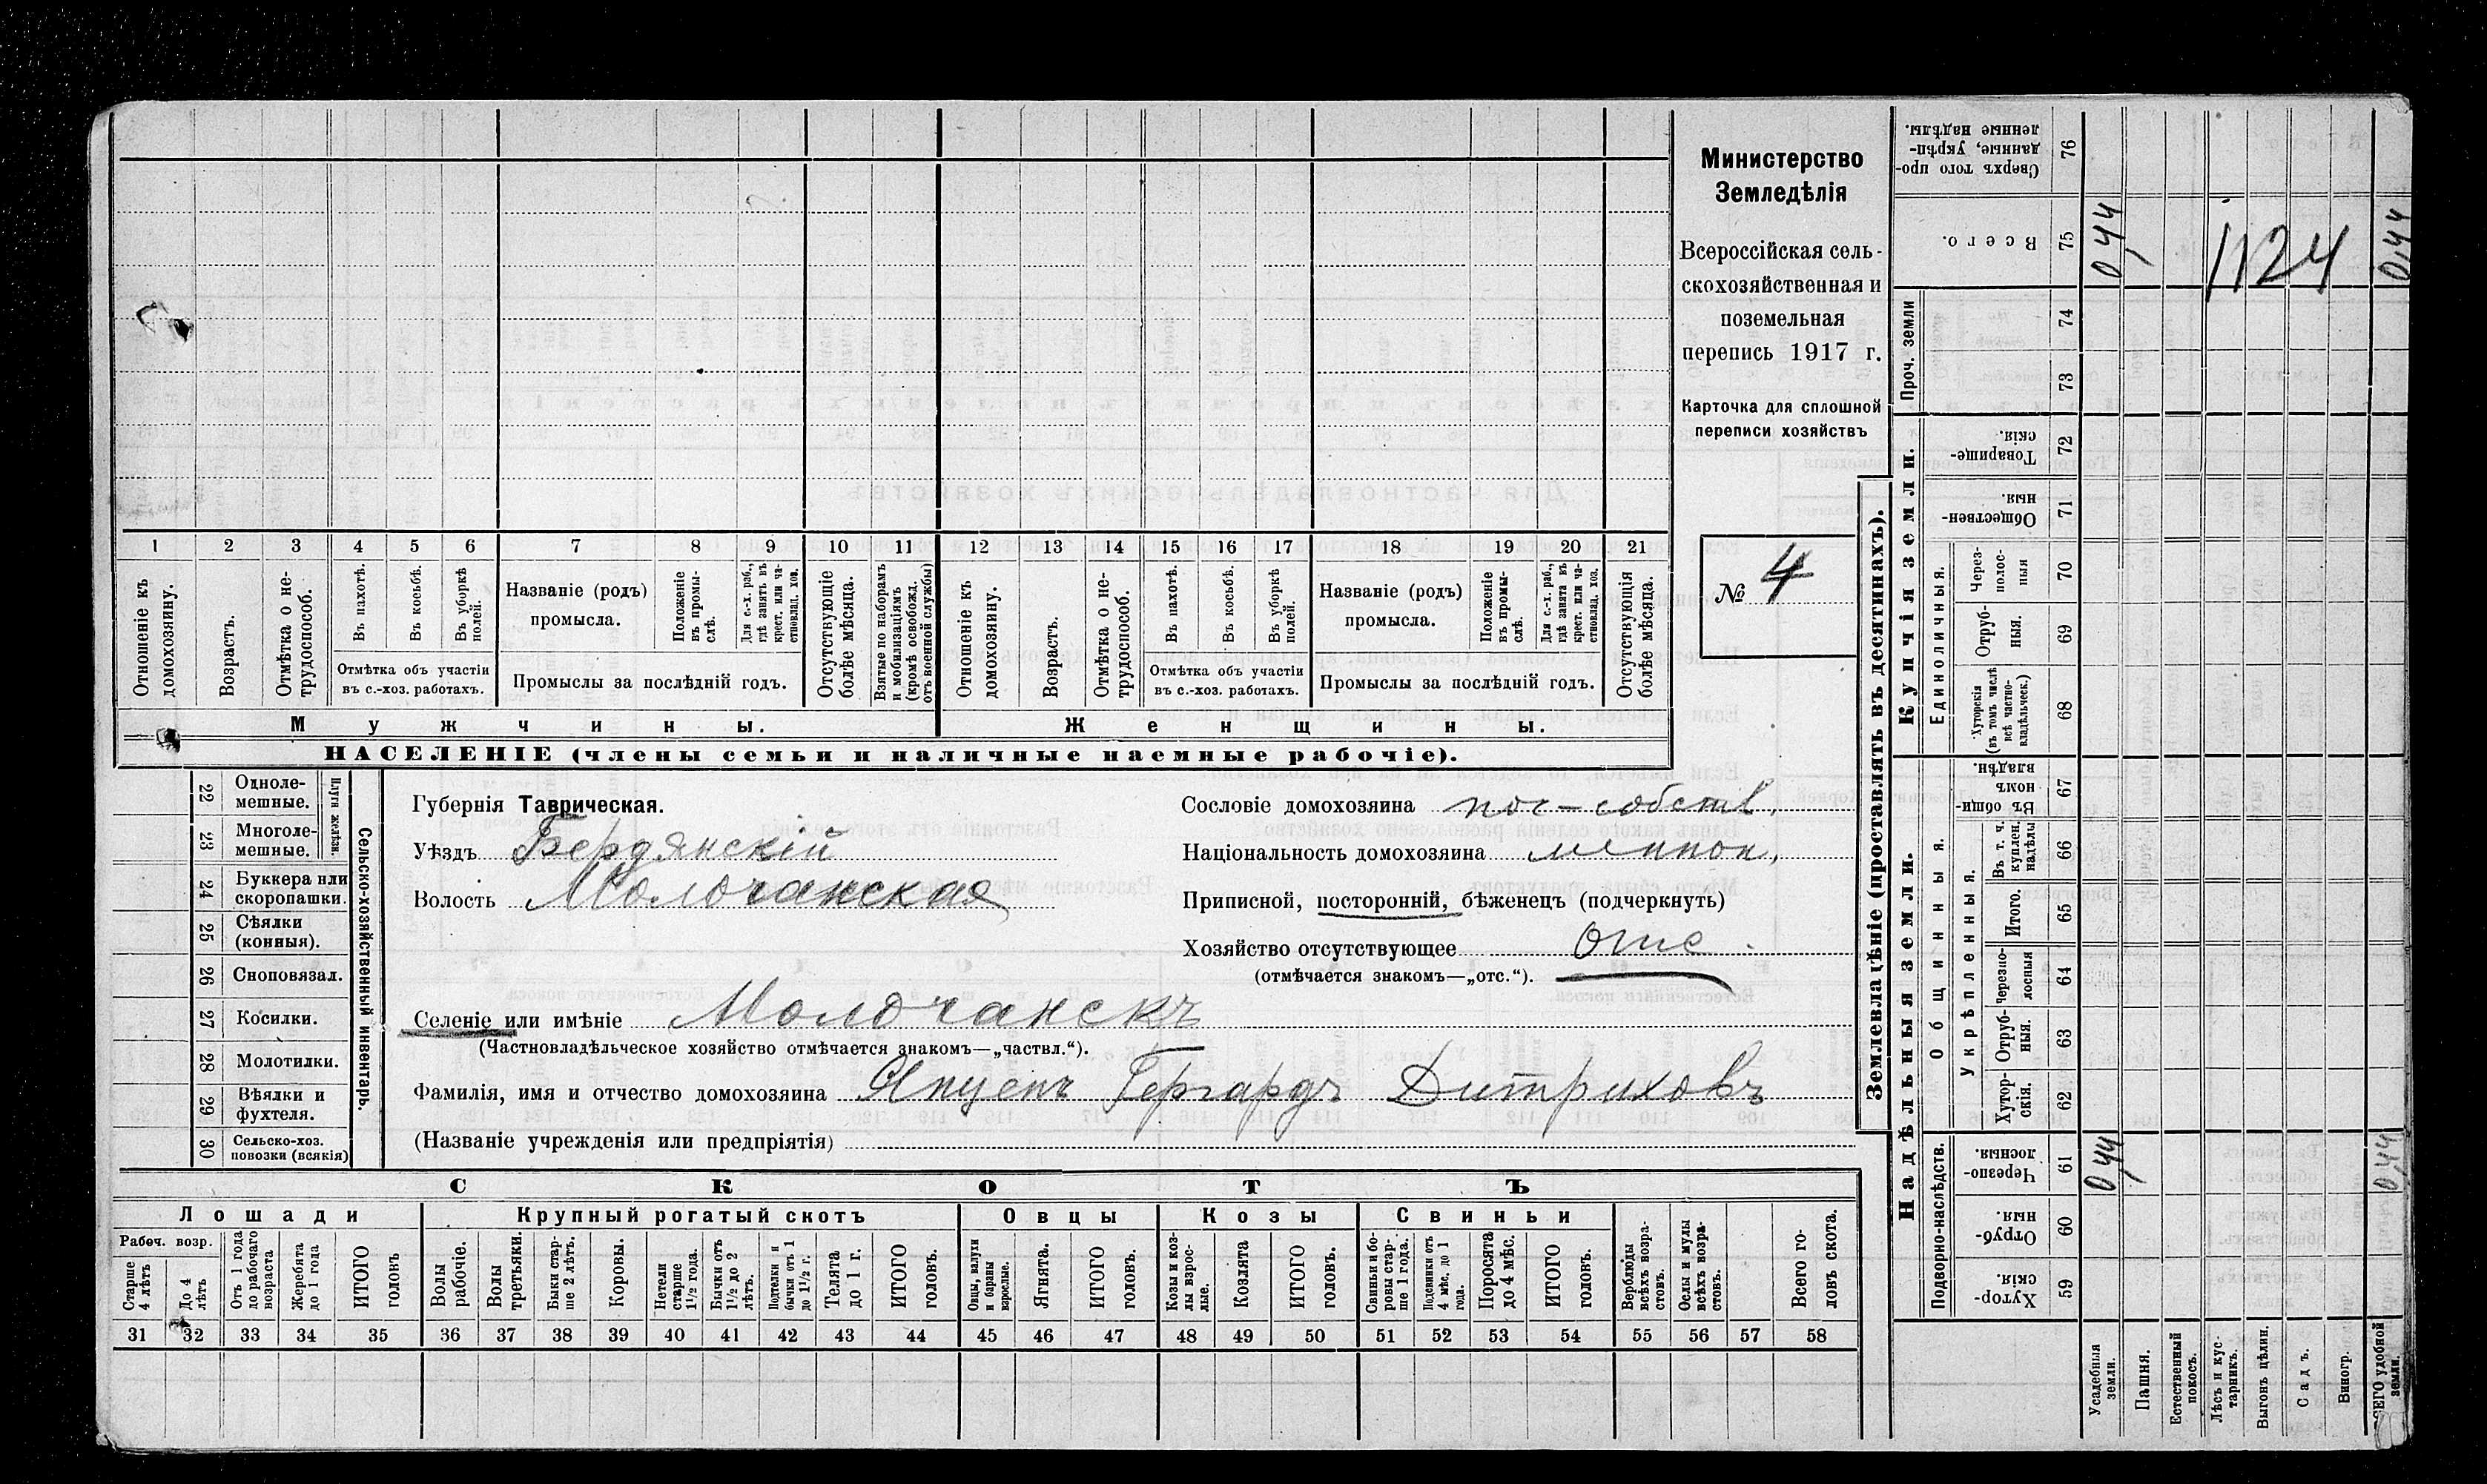 Министерство
Земледѣлія
Всероссійская сель-
скохозяйственная и
поземельная
перепись 1917 г.
Карточка для сплошной
переписи хозяйствъ
№ 4
1 2 3 4 5 6 7 8 9 10 11 12 13 14 15 16 17 18 19 20 21
Отношеніе къ домохозяину.
Возрастъ.
Отмѣтка о не-трудоспособ.
Въ пахотѣ.
Въ косьбѣ.
Въ уборкѣ полей.
Отмѣтка объ участіи
въ с.-хоз. работахъ.
Названіе (родъ)
промысла.
Положеніе въ промы-слѣ.
Для с.-х. раб., гдѣ занятъ въ крест. или ча-стновлад. хоз.
Промыслы за послѣдній годъ.
Отсутствующіе болѣе мѣсяца.
Взятые по наборамъ и мобилизаціямъ (кромѣ освобожд. отъ военной службы)
Отношеніе къ домохозяину.
Возрастъ.
Отмѣтка о не-трудоспособ.
Въ пахотѣ.
Въ косьбѣ.
Въ уборкѣ полей.
Отмѣтка объ участіи
въ с.-хоз. работахъ.
Названіе (родъ)
промысла.
Положеніе въ промы-слѣ.
Для с.-х. раб., гдѣ занята въ крест. или ча-стновлад. хоз.
Промыслы за послѣдній годъ.
Отсутствующія болѣе мѣсяца.
Мужчины. Женщины.
НАСЕЛЕНІЕ (члены семьи и наличные наемные рабочіе).
22 Одноле-мешные.
23 Многоле-мешные.
Плуги желѣзн.
24 Буккера или скоропашки.
25 Сѣялки (конныя).
26 Сноповязал.
27 Косилки.
28 Молотилки.
29 Вѣялки и фухтеля.
30 Сельско-хоз. повозки (всякія)
Сельско-хозяйственный инвентарь.
Губернія Таврическая.
Уѣздъ Бердянскій
Волость Молочанская
Сословіе домохозяина пос-собств.
Національность домохозяина меннон.
Приписной, посторонній, бѣженецъ (подчеркнуть)
Хозяйство отсутствующее отс.
(отмѣчается знакомъ—„отс.“).
Селеніе или имѣніе Молочанскъ
(Частновладѣльческое хозяйство отмѣчается знакомъ—„частвл.“).
Фамилія, имя и отчество домохозяина Янценъ Гергардъ Дитриховъ
(Названіе учрежденія или предпріятія)
СКОТЪ
Лошади Крупный рогатый скотъ Овцы Козы Свиньи
Рабоч. возр.
Старше 4 лѣтъ
До 4 лѣтъ
Отъ 1 года до рабочаго возраста
Жеребята до 1 года
ИТОГО головъ
Волы рабочіе.
Волы третьяки.
Быки стар-ше 2 лѣтъ.
Коровы.
Нетели старше 1½ года.
Бычки отъ 1½ до 2 лѣтъ.
Подтелки и бычки отъ 1 до 1½ г.
Телята до 1 г.
ИТОГО головъ.
Овцы, валухи и бараны взрослые.
Ягнята.
ИТОГО головъ.
Козы и коз-лы взрос-лые.
Козлята
ИТОГО головъ.
Свиньи и бо-ровы стар-ше 1 года.
Подсвинки отъ 4 мѣс. до 1 года.
Поросята до 4 мѣс.
ИТОГО головъ.
Верблюды всѣхъ возра-стовъ.
Ослы и мулы всѣхъ возра-стовъ.
Всего го-ловъ скота.
31 32 33 34 35 36 37 38 39 40 41 42 43 44 45 46 47 48 49 50 51 52 53 54 55 56 57 58
Землевладѣніе (проставлять въ десятинахъ).
Надѣльныя земли. Купчія земли. Проч. земли
Подворно-наслѣдств.
Общинныя.
Укрѣпленныя.
Единоличныя.
Хутор-скія. 59
Отруб-ныя. 60
Черезпо-лосныя. 61 0,44 0,44
Хутор-скія. 62
Отруб-ныя. 63
Черезпо-лосныя 64
Итого. 65
Въ т. ч. куплен. надѣлы 66
Въ общин-номъ владѣн. 67
Хуторскія (въ томъ числѣ всѣ частно-владѣльческ.) 68
Отруб-ныя. 69
Через-полос-ныя 70
Обществен-ныя. 71
Товарище-скія. 72
73
74
Всего. 75 0,44 1124 0,44
Сверхъ того про-данные, укрѣп-ленные надѣлы. 76
Усадебныя земли.
Пашня.
Естественный покосъ.
Лѣсъ и кус-тарникъ.
Выгонъ цѣлин.
Садъ.
Виногр.
ВСЕГО удобной земли.